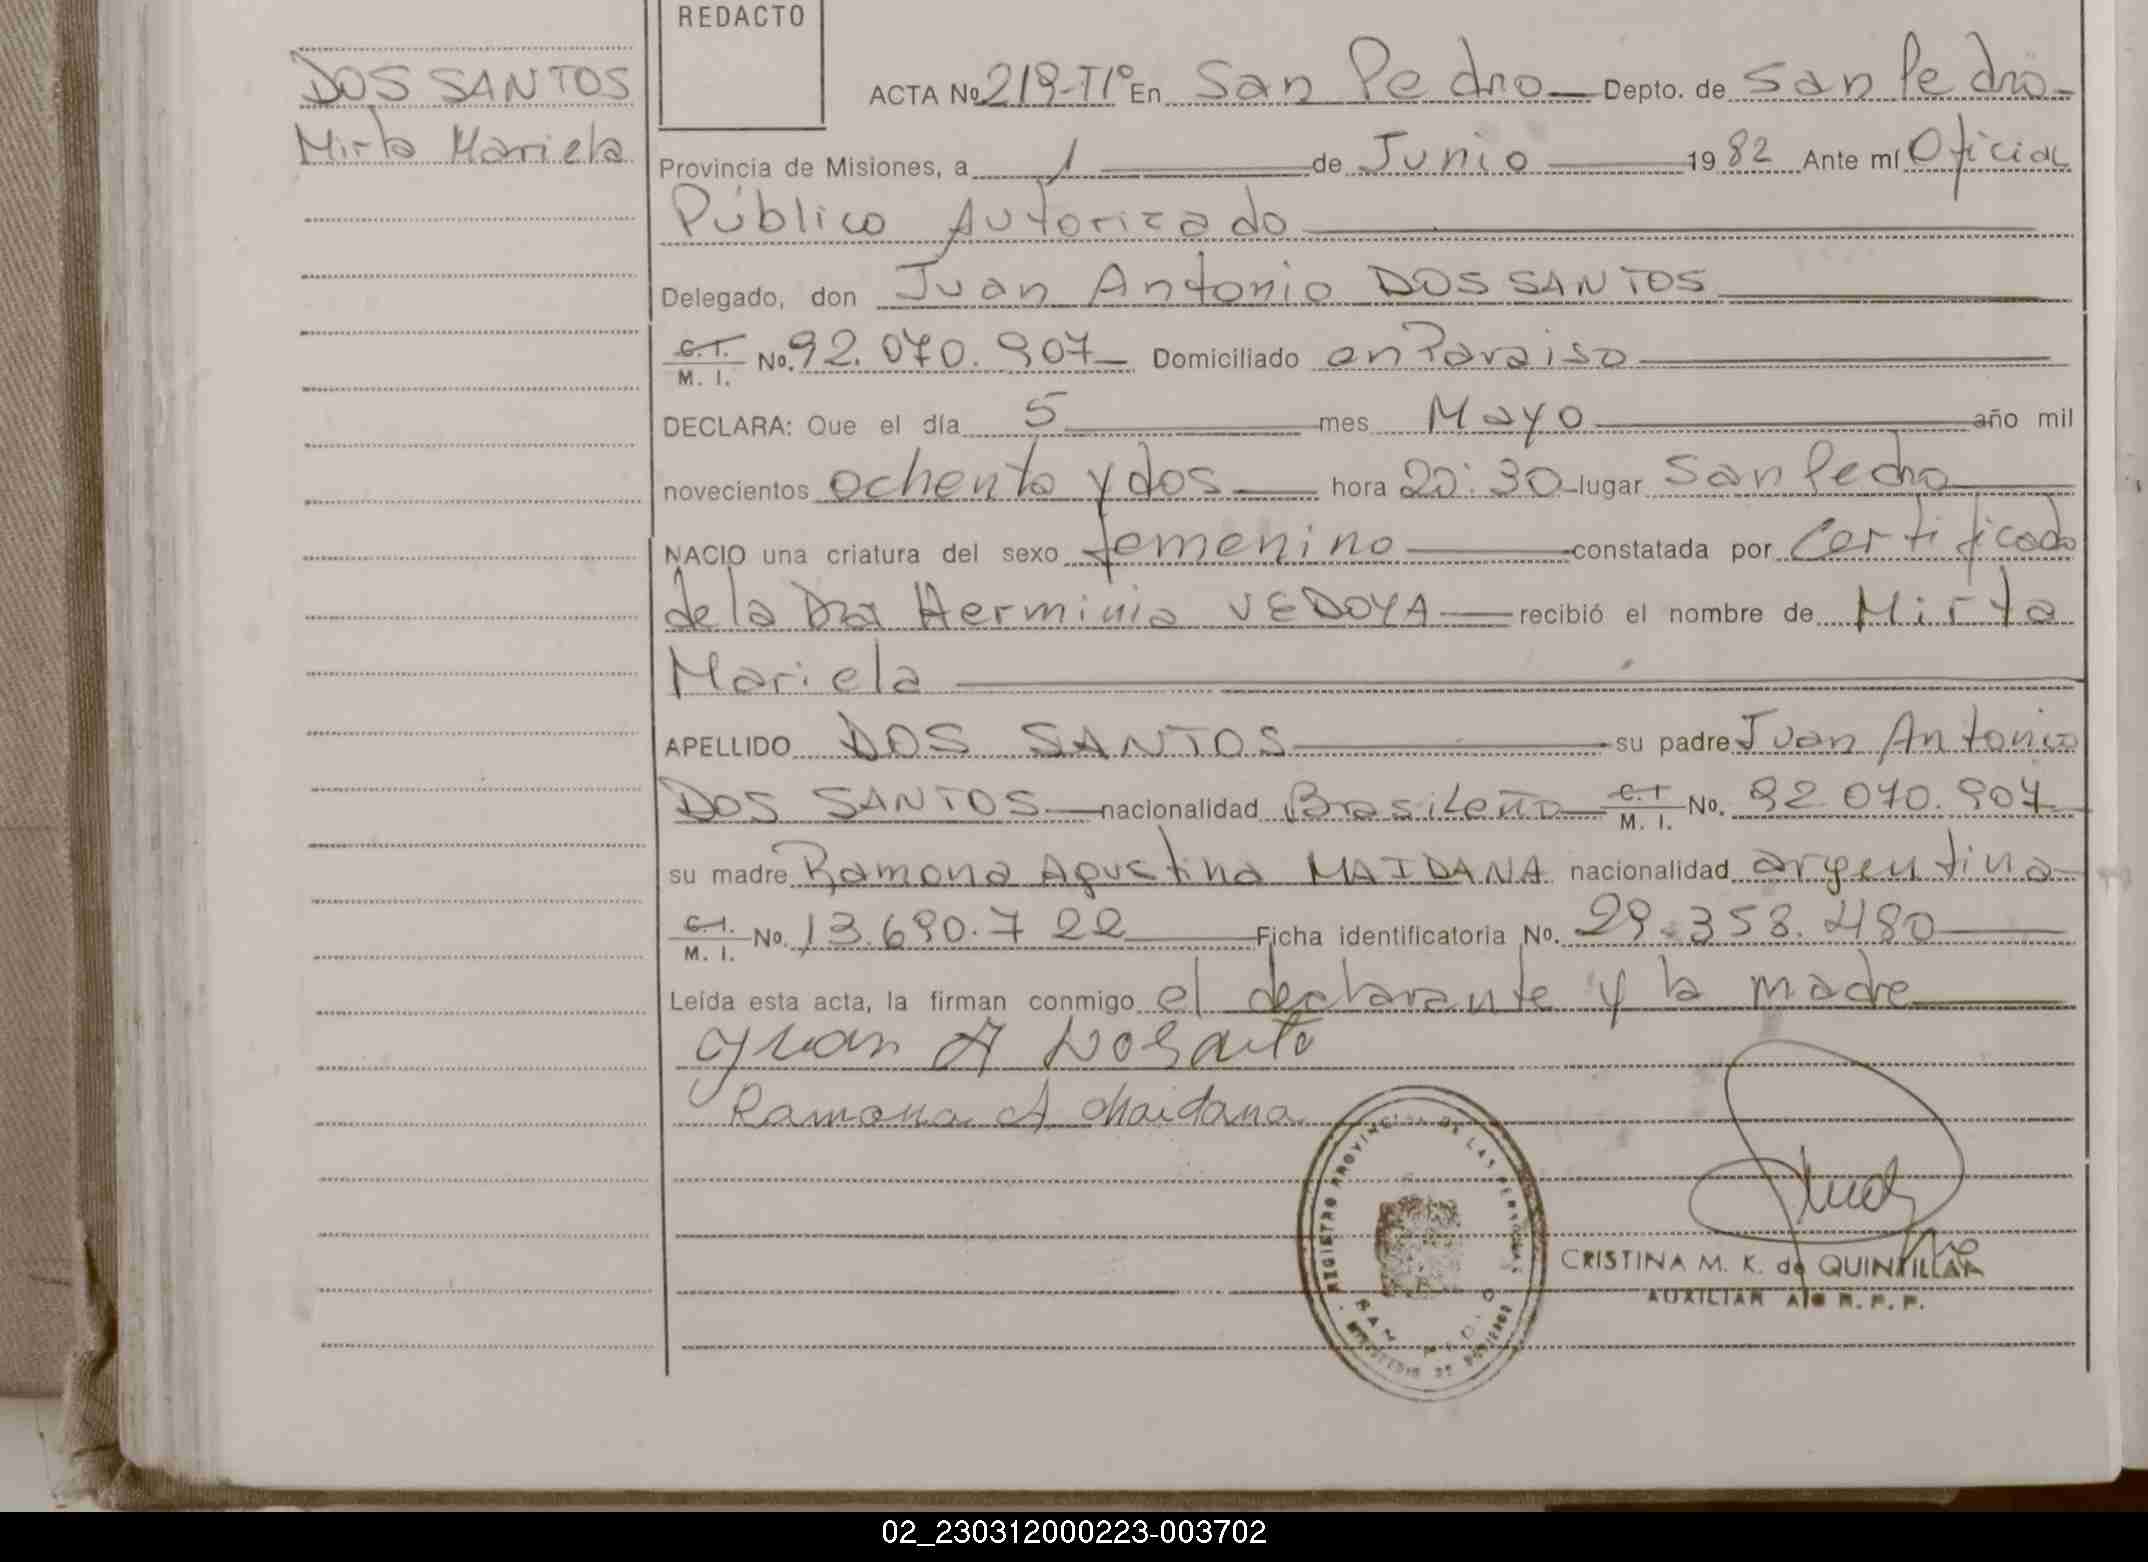 REDACTO
DOS SANTOS
Mirta Mariela
ACTA No 219-T1º En San Pedro Depto. de San Pedro
Provincia de Misiones, a 1 de Junio 1982 Ante mí Oficial
Público Autorizado
Delegado, don Juan Antonio DOS SANTOS
C.I. M. I. No. 92.070.907 Domiciliado en Paraiso
DECLARA: Que el día 5 mes Mayo año mil
novecientos ochenta y dos hora 20:30 lugar San Pedro
NACIO una criatura del sexo femenino constatada por Certificado
de la Dra Herminia VEDOYA recibió el nombre de Mirta
Mariela
APELLIDO DOS SANTOS su padre Juan Antonio
DOS SANTOS nacionalidad Brasileño C.I M. I. No. 92.070.907
su madre Ramona Agustina MAIDANA nacionalidad argentina
C.I. M. I. No. 13.690.722 Ficha identificatoria No. 29.358.480
Leída esta acta, la firman conmigo el declarante y la madre
Juan A Dosanto
Ramona A Maidana
REGISTRO PROVINCIAL DE LAS PERSONAS
SAN PEDRO
MINISTERIO DE GOBIERNO
CRISTINA M. K. de QUINTILLAN
AUXILIAR A/C R. P. P.
02_230312000223-003702